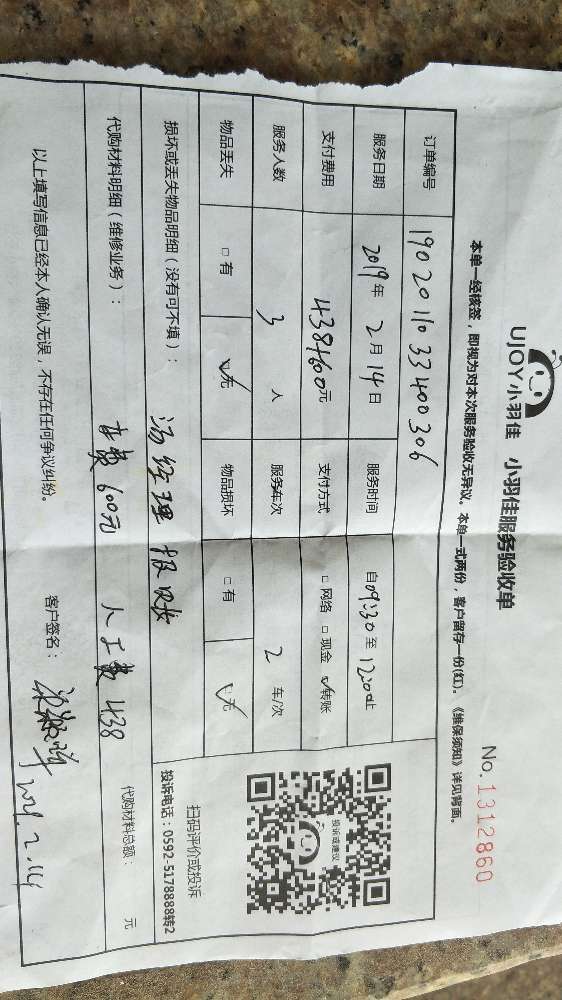 UJOY小羽佳 小羽佳服务验收单
No.1312860
本单一经核签，即视为对本次服务验收无异议。本单一式两份，客户留存一份(红)。《维保须知》详见背面。
订单编号 1902011033400306
服务日期 2019年2月14日 服务时间 自09:30至12:00止
支付费用 438+600元 支付方式 □网络 □现金 ☑转账
服务人数 3人 服务车次 2车/次
物品丢失 □有 ☑无 物品损坏 □有 ☑无
投诉或建议
扫码评价或投诉
投诉电话：0592-5178888转2
损坏或丢失物品明细（没有可不填）：
汤经理报账
代购材料明细（维修业务）： 车费600元 人工费438 代购材料总额： 元
以上填写信息已经本人确认无误，不存在任何争议纠纷。 客户签名：
2019.2.14